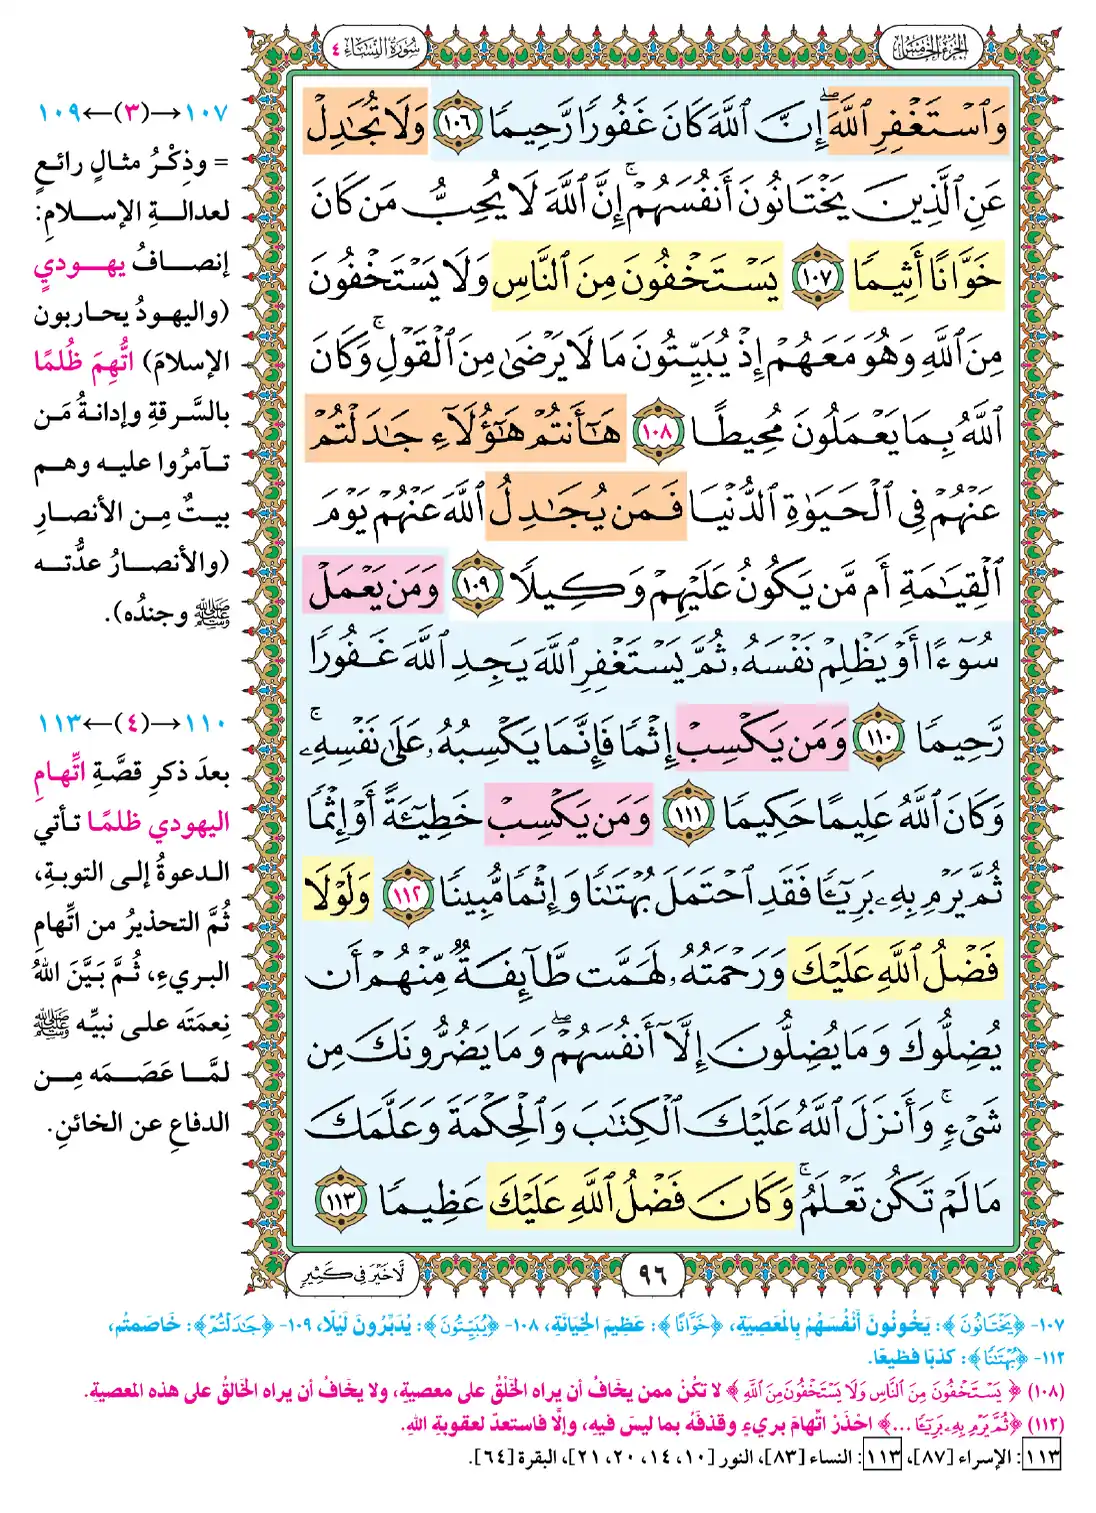 الجزء الخامس
سورة النساء ٤
وَٱسۡتَغۡفِرِ ٱللَّهَۖ إِنَّ ٱللَّهَ كَانَ غَفُورٗا رَّحِيمٗا ١٠٦ وَلَا تُجَٰدِلۡ
عَنِ ٱلَّذِينَ يَخۡتَانُونَ أَنفُسَهُمۡۚ إِنَّ ٱللَّهَ لَا يُحِبُّ مَن كَانَ
خَوَّانًا أَثِيمٗا ١٠٧ يَسۡتَخۡفُونَ مِنَ ٱلنَّاسِ وَلَا يَسۡتَخۡفُونَ
مِنَ ٱللَّهِ وَهُوَ مَعَهُمۡ إِذۡ يُبَيِّتُونَ مَا لَا يَرۡضَىٰ مِنَ ٱلۡقَوۡلِۚ وَكَانَ
ٱللَّهُ بِمَا يَعۡمَلُونَ مُحِيطًا ١٠٨ هَٰٓأَنتُمۡ هَٰٓؤُلَآءِ جَٰدَلۡتُمۡ
عَنۡهُمۡ فِي ٱلۡحَيَوٰةِ ٱلدُّنۡيَا فَمَن يُجَٰدِلُ ٱللَّهَ عَنۡهُمۡ يَوۡمَ
ٱلۡقِيَٰمَةِ أَم مَّن يَكُونُ عَلَيۡهِمۡ وَكِيلٗا ١٠٩ وَمَن يَعۡمَلۡ
سُوٓءًا أَوۡ يَظۡلِمۡ نَفۡسَهُۥ ثُمَّ يَسۡتَغۡفِرِ ٱللَّهَ يَجِدِ ٱللَّهَ غَفُورٗا
رَّحِيمٗا ١١٠ وَمَن يَكۡسِبۡ إِثۡمٗا فَإِنَّمَا يَكۡسِبُهُۥ عَلَىٰ نَفۡسِهِۦۚ
وَكَانَ ٱللَّهُ عَلِيمًا حَكِيمٗا ١١١ وَمَن يَكۡسِبۡ خَطِيٓـَٔةً أَوۡ إِثۡمٗا
ثُمَّ يَرۡمِ بِهِۦ بَرِيٓـٔٗا فَقَدِ ٱحۡتَمَلَ بُهۡتَٰنٗا وَإِثۡمٗا مُّبِينٗا ١١٢ وَلَوۡلَا
فَضۡلُ ٱللَّهِ عَلَيۡكَ وَرَحۡمَتُهُۥ لَهَمَّت طَّآئِفَةٞ مِّنۡهُمۡ أَن
يُضِلُّوكَ وَمَا يُضِلُّونَ إِلَّآ أَنفُسَهُمۡۖ وَمَا يَضُرُّونَكَ مِن
شَيۡءٖۚ وَأَنزَلَ ٱللَّهُ عَلَيۡكَ ٱلۡكِتَٰبَ وَٱلۡحِكۡمَةَ وَعَلَّمَكَ
مَا لَمۡ تَكُن تَعۡلَمُۚ وَكَانَ فَضۡلُ ٱللَّهِ عَلَيۡكَ عَظِيمٗا ١١٣
١٠٧→(٣)←١٠٩
= وذِكْرُ مثالٍ رائعٍ
لعدالةِ الإسلامِ:
إنصافُ يهوديٍ
(واليهودُ يحاربون
الإسلامَ) اتُّهِمَ ظُلمًا
بالسَّرقةِ وإدانةُ مَن
تآمرُوا عليه وهم
بيتٌ مِن الأنصارِ
(والأنصارُ عدَّته
ﷺ وجندُه).
١١٠→(٤)←١١٣
بعدَ ذكرِ قصَّةِ اتِّهامِ
اليهودي ظلمًا تأتي
الدعوةُ إلى التوبةِ،
ثُمَّ التحذيرُ من اتِّهامِ
البريءِ، ثُمَّ بَيَّنَ اللهُ
نِعمَتَه على نبيِّه ﷺ
لمَّا عَصَمَه مِن
الدفاعِ عن الخائنِ.
٩٦
لَّا خَيْرَ فِي كَثِيرٍ
١٠٧- ﴿يَخْتَانُونَ﴾: يَخُونُونَ أَنْفُسَهُمْ بِالْمَعْصِيَةِ، ﴿خَوَّانًا﴾: عَظِيمَ الخِيَانَةِ، ١٠٨- ﴿يُبَيِّتُونَ﴾: يُدَبِّرُونَ لَيْلًا، ١٠٩- ﴿جَٰدَلْتُمْ﴾: خَاصَمتُم،
١١٢- ﴿بُهْتَٰنًا﴾: كذبًا فظيعًا.
(١٠٨) ﴿يَسْتَخْفُونَ مِنَ ٱلنَّاسِ وَلَا يَسْتَخْفُونَ مِنَ ٱللَّهِ﴾ لا تكُنْ ممن يخافُ أن يراه الخَلْقُ على معصيةٍ، ولا يخافُ أن يراه الخالقُ على هذه المعصيةِ.
(١١٢) ﴿ثُمَّ يَرْمِ بِهِۦ بَرِيٓـًٔا ...﴾ احْذَرْ اتِّهامَ بريءٍ وقذفَهُ بما ليسَ فيهِ، وإلَّا فاستعدّ لعقوبةِ اللهِ.
١١٣: الإسراء [٨٧]، ١١٣: النساء [٨٣]، النور [١٠، ١٤، ٢٠، ٢١]، البقرة [٦٤].